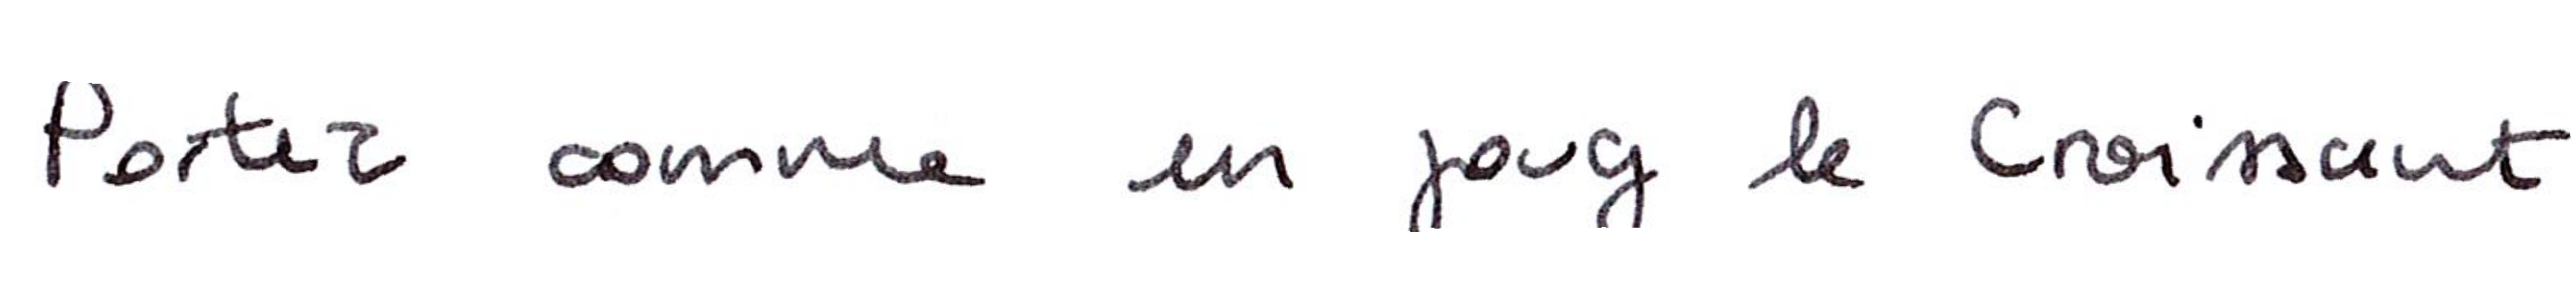 Portez comme un joug le Croissant